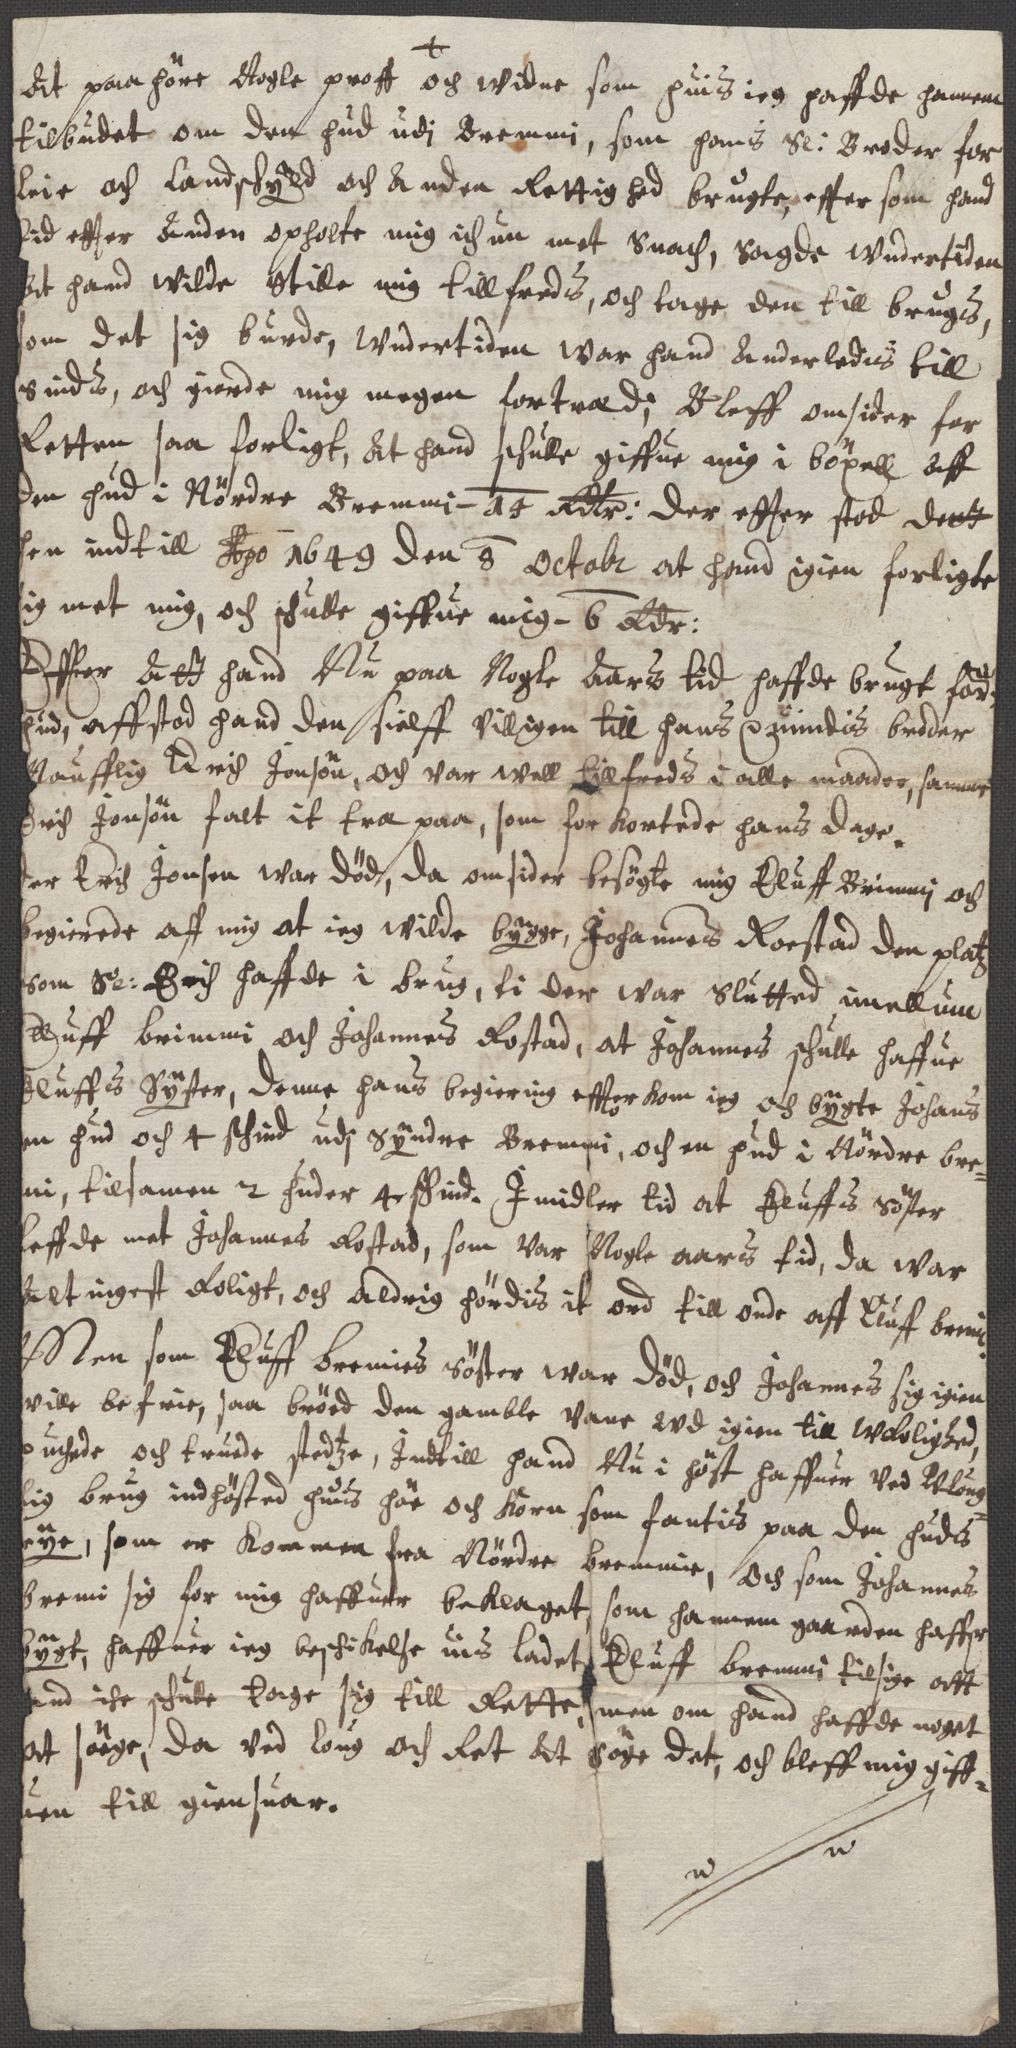 +
At paa höre Nogle proff och widne som huis ieg haffde hannem
tilbudet om den hud udj Bremmi, som hans Sl: Broder for
leie och landschyld och anden Rettighed brugte, effter som hand
tid effter anden opholte mig ickun met Snach, Sagde wndertiden
At hand wilde Stille mig tillfreds, och tage den till brugs,
som det sig burde, wndertiden war hand anderledis till
Sinds, och gierde mig megen fortræd; Bleff omsider for
Retten saa forligt, At hand schulle giffue mig i böxell aff
den hud i Nördre Bremmi - 14 Rdlr: der effter stod dett
hen indtill Ao 1649 den 8 Octobr at hand igien forligte
sig met mig, och schulle giffue mig - 6 Rdr:
Effter Att hand Nu paa Nogle Aars tid haffde brugt for:
hud, affstod hand den sielff villigen till hans quindis broder
Naufflig Erich Jonsön, och var well tillfreds i alle maader, samme
Erich Jonsön falt it træ paa, som forkortede hans dage.
der Erich Jonsen war död, da omsider besögte mig Eluff Brimmj och
begierede aff mig at ieg wilde bÿgge, Johannes Roestad den platz
som Sl: Erich haffde i brug, ti der war Slutted imellum
Eluff brimmi och Johannes Rostad, at Johannes schulle haffue
Eluffs Sÿster, denne hans begiering effterkom ieg och bÿgte Johans
en hud och 4 schind udj Sÿndre Bremmi, och en hud i Nördre bre-
mi, tilsamen 2 huder 4 schind. Imidler tid at Eluffs Söster
leffde met Johannes Rostad, som var Nogle aars tid, da war
alt ingest Roligt, och aldrig hördis it ord till onde aff Eluff bremi.
Men som Eluff bremies Söster war död, och Johannes sig igien
ville befrie, saa bröed den gamble vane wd igien till wrolighed,
puchede och truede stedtze, Indtill hand Nu i höst haffuer ved Wloug-
lig brug indhösted huis höe och Korn som fantis paa den huds
eÿe, som er Kommen fra Nördre bremmie, Och som Johannes
bremi sig for mig haffuer beklaget, som hannem gaarden haffr
bÿgt, haffuer ieg beschikelse uis ladet Eluff bremmi tilsige att
hand iche schulle tage sig till Rette, men om hand haffde noget
at söege, da ved loug och Ret At söge det, och bleff mig giff-
uen till giensuar.